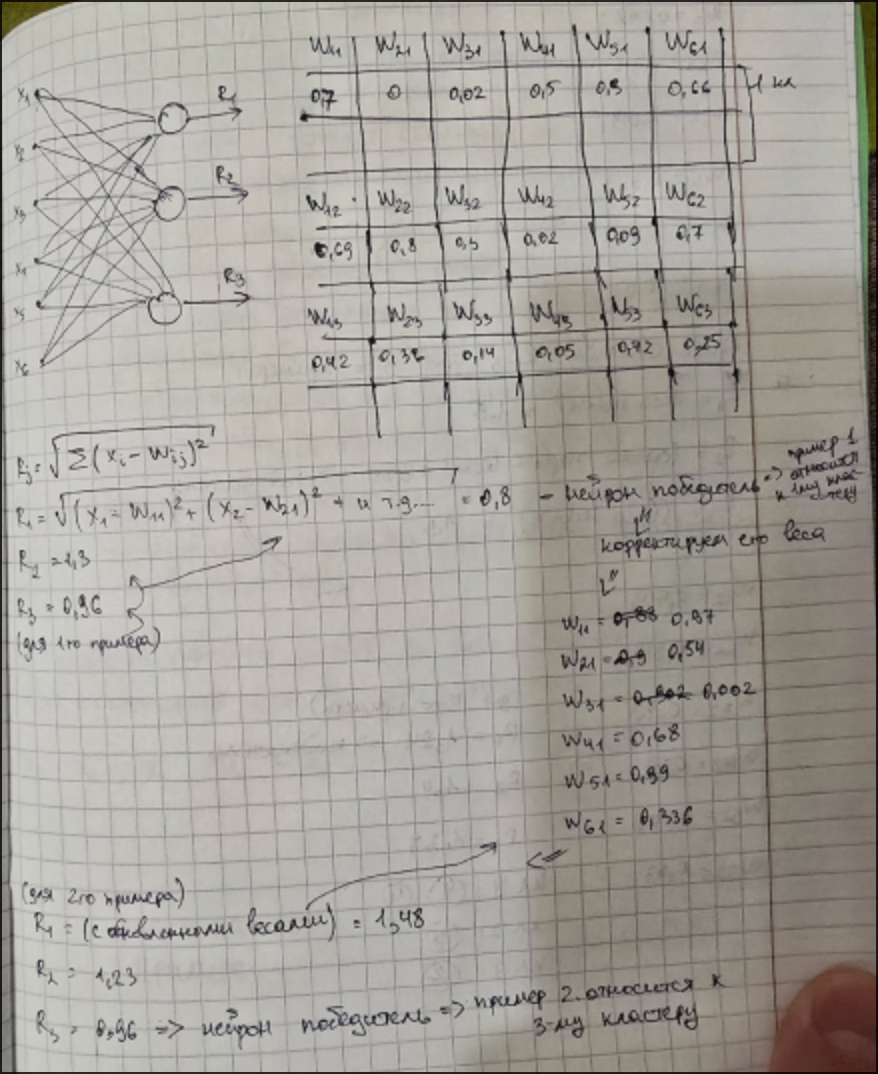 W11 W21 W31 W41 W51 W61
0,7 0 0,02 0,5 0,66
1 кл
x1 R1
x2
x3 R2
x4
x5 R3
x6
W12 W22 W32 W42 W52 W62
0,69 0,8 0,02 0,09 0,7
W13 W23 W33 W43 W53 W63
0,42 0,38 0,14 0,05 0,42 0,25
Rj = √Σ(xi - Wij)²
R1 = √(x1 - W11)² + (x2 - W21)² + и т.д.... = 0,8 - нейрон победитель => пример 1 относится к 1му кластеру
корректируем его веса
R2 = 1,3
R3 = 0,96
(для 1го примера)
W11 = 0,88 0,97
W21 = 0,9 0,54
W31 = 0,002
W41 = 0,68
W51 = 0,99
W61 = 0,336
(для 2го примера)
R1 = (с обновленными весами) = 1,48
R2 = 1,23
R3 = 0,96 => нейрон победитель => пример 2. относится к
3-му кластеру